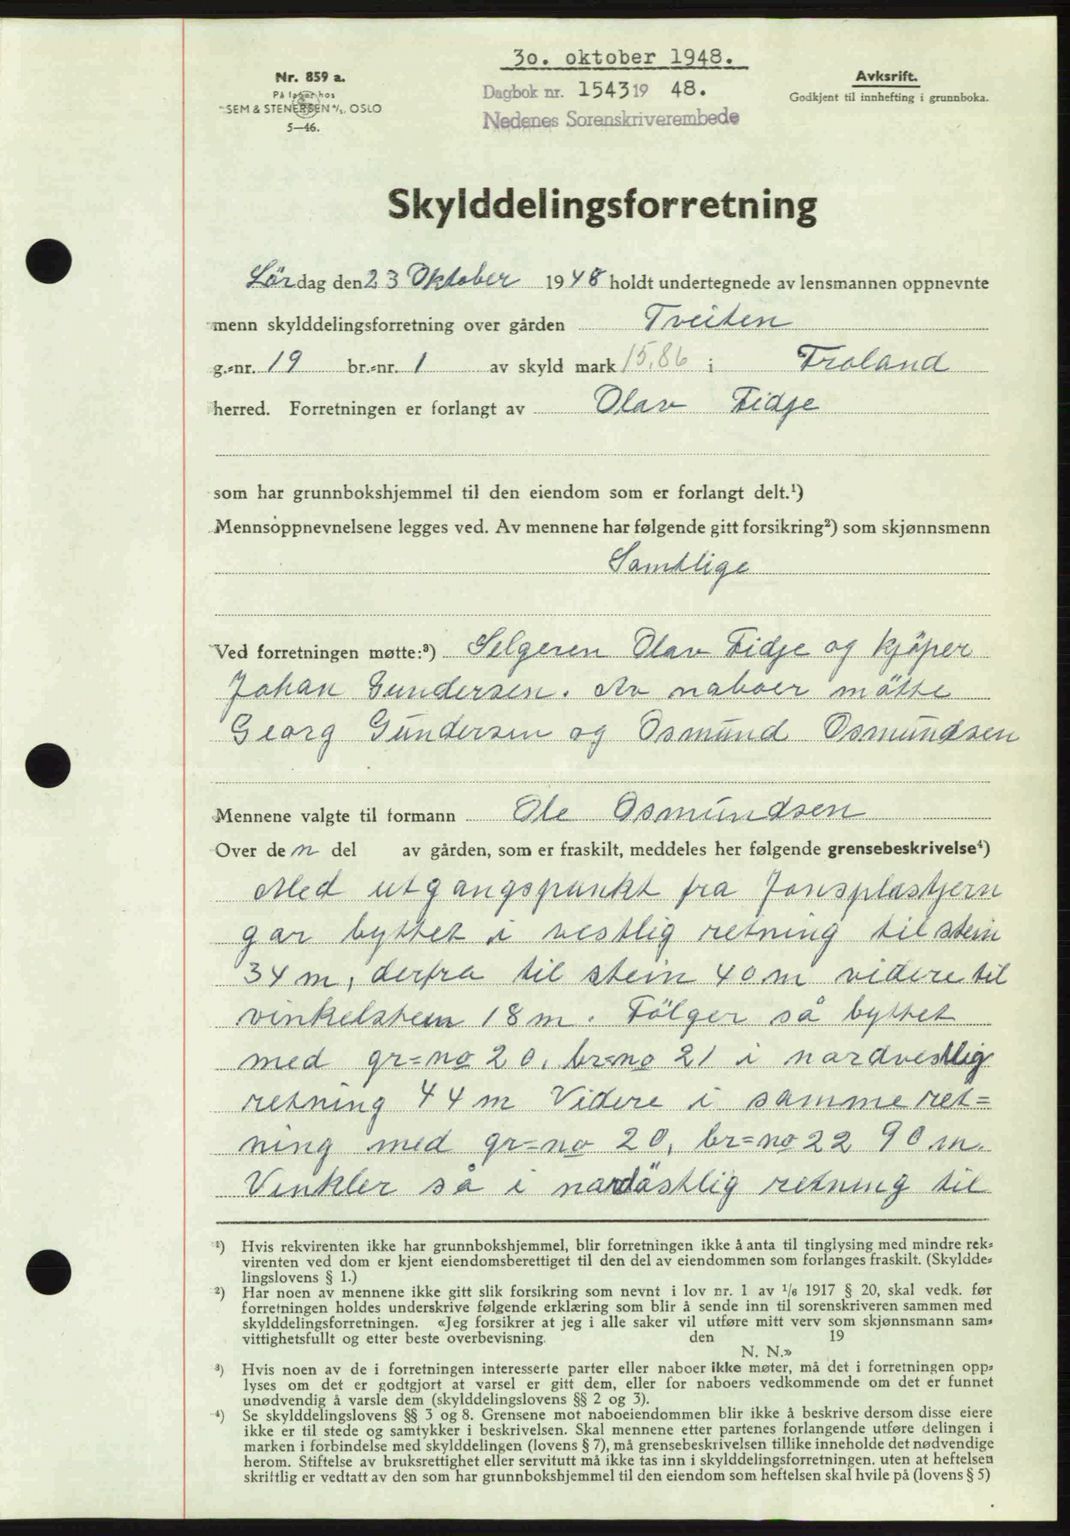 30. oktober 1948.
Nr. 859 a.
På lager hos
SEM & STENERSEN A/S, OSLO
5—46.
Dagbok nr. 1543 19 48.
Nedenes Sorenskriverembede
Avksrift.
Godkjent til innhefting i grunnboka.
Skylddelingsforretning
Lördag den 23 Oktober 1948 holdt undertegnede av lensmannen oppnevnte
menn skylddelingsforretning over gården Tveiten
g.-nr. 19 br.-nr. 1 av skyld mark 15,86 i Froland
herred. Forretningen er forlangt av Olav Fidje
som har grunnbokshjemmel til den eiendom som er forlangt delt.¹)
Mennsoppnevnelsene legges ved. Av mennene har følgende gitt forsikring²) som skjønnsmenn
Samtlige
Ved forretningen møtte:³) Selgeren Olav Fidje og kjöper
Johan Gundersen. Av naboer mötte
Georg Gundersen og Osmund Osmundsen
Mennene valgte til formann Ole Osmundsen
Over den del av gården, som er fraskilt, meddeles her følgende grensebeskrivelse⁴)
Med utgangspunkt fra Jonsplastjern
gar byttet i vestlig retning til stein
34 m, derfra til stein 40 m videre til
vinkelstein 18 m. Fölger så byttet
med gr=no 20, br=no 21 i nordvestlig
retning 44 m Videre i samme ret=
ning med gr=no 20, br=no 22 90 m.
Vinkler så i nordöstlig retning til
¹) Hvis rekvirenten ikke har grunnbokshjemmel, blir forretningen ikke å anta til tinglysing med mindre rek-
virenten ved dom er kjent eiendomsberettiget til den del av eiendommen som forlanges fraskilt. (Skyldde-
lingslovens § 1.)
²) Har noen av mennene ikke gitt slik forsikring som nevnt i lov nr. 1 av 1/6 1917 § 20, skal vedk. før
forretningen holdes underskrive følgende erklæring som blir å sende inn til sorenskriveren sammen med
skylddelingsforretningen. «Jeg forsikrer at jeg i alle saker vil utføre mitt verv som skjønnsmann sam-
vittighetsfullt og etter beste overbevisning. den 19
N. N.»
³) Hvis noen av de i forretningen interesserte parter eller naboer ikke møter, må det i forretningen opp-
lyses om det er godtgjort at varsel er gitt dem, eller for naboers vedkommende om det er funnet
unødvendig å varsle dem (skylddelingslovens §§ 2 og 3).
⁴) Se skylddelingslovens §§ 3 og 8. Grensene mot naboeiendommen blir ikke å beskrive dersom disse eiere
ikke er til stede og samtykker i beskrivelsen. Skal mennene etter partenes forlangende utføre delingen i
marken i forbindelse med skylddelingen (lovens § 7), må grensebeskrivelsen tillike inneholde det nødvendige
herom. Stiftelse av bruksrettighet eller servitutt må ikke tas inn i skylddelingsforretningen, uten at heftelsen
skriftlig er vedtatt av den som har grunnbokshjemmel til den eiendom som heftelsen skal hvile på (lovens § 5)